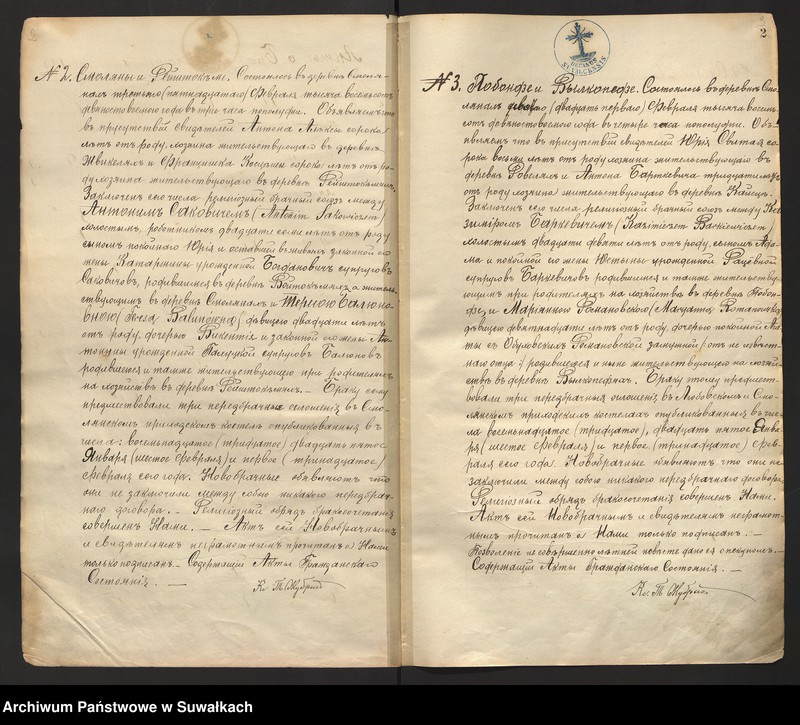 № 2. Смоляны и Рейштокъме. Состоялось въ деревнѣ Смоля-
нахъ третьяго (пятнадцатаго) Февраля тысяча восемьсотъ
девяностовосьмого года въ три часа пополудни. Объявляемъ что
въ присутствіи свидѣтелей Антона сорока
лѣтъ отъ роду, хозяина жительствующаго въ деревнѣ
и Францишка сорока лѣтъ отъ ро-
ду хозяина жительствующаго въ деревнѣ
Заключенъ сего числа религіозный брачный союзъ между
Антонимъ Саковичемъ (Antoni Sakowiczem)
холостымъ, работникомъ двадцати семи лѣтъ отъ роду
сыномъ покойнаго Юрія и оставшей въ живыхъ законной его
жены Катаржины урожденной Богдановичъ супруговъ
Саковичовъ, родившимся въ деревнѣ а житель-
ствующимъ въ деревнѣ Смолянахъ и Терезою Балюно-
вною дѣвицею двадцати лѣтъ
отъ роду, дочерью Викентія и законной его жены Ан-
тонины урожденной супруговъ Балюновъ
родившеюся и тамже жительствующею при родителяхъ
на хозяйствѣ въ деревнѣ — Браку сему
предшествовали три передбрачныя оглошенія въ Смо-
лянскомъ приходскомъ костелѣ опубликованныя въ
числа: восемьнадцатое (тридцатое) двадцать пятое
Января (шестое Февраля) и первое (тринадцатое)
Февраля сего года. Новобрачные объявляютъ что
они не заключили между собою никакого передбрач-
наго договора. — Религіозный обрядъ бракосочетанія
совершенъ Нами. — Актъ сей Новобрачнымъ
и свидѣтелямъ неграмотнымъ прочитанъ а Нами
только подписанъ. — Содержащій Акты Гражданскаго
Состоянія. —
Кс. Т.
2
SUVALCENSIS
№ 3. Побондзе и Вылкопедзе. Состоялось въ деревнѣ Смо-
лянахъ девятаго (двадцать перваго) Февраля тысяча восемь-
сотъ девяностовосьмого года въ четыре часа пополудни. Объ-
являемъ что въ присутствіи свидѣтелей Юрія со-
рока восьми лѣтъ отъ роду хозяина жительствующаго въ
деревнѣ и Антона Барткевича тридцати лѣтъ
отъ роду хозяина жительствующаго въ деревнѣ
Заключенъ сего числа религіозный брачный союзъ между Ка-
зимиромъ Баркевичемъ (Kazimierz Barkiewiczem)
холостымъ двадцати девяти лѣтъ отъ роду, сыномъ Ада-
ма и покойной его жены Юстыны урожденной
супруговъ Баркевичовъ родившимся и тамже жительству-
ющимъ при родителяхъ на хозяйствѣ въ деревнѣ Побон-
дзе, и Марянною Романовскою
дѣвицею девятнадцати лѣтъ отъ роду, дочерью покойной
Романовской замужной (отъ не извѣст-
наго отца) родившеюся и ныне жительствующею на хозяй-
ствѣ въ деревнѣ Вылкопедзяхъ. Браку этому предшест-
вовали три передбрачныя оглошенія въ Любовскомъ и Смо-
лянскомъ приходскомъ костелахъ опубликованныя въ чис-
ла восемьнадцатое (тридцатое), двадцать пятое Янва-
ря (шестое Февраля) и первое (тринадцатое) Фев-
раля сего года. Новобрачные объявляютъ что они не
заключили между собою никакого передбрачнаго договора.
Религіозный обрядъ бракосочетанія совершенъ Нами.
Актъ сей Новобрачнымъ и свидѣтелямъ неграмот-
нымъ прочитанъ а Нами только подписанъ. —
Позволеніе не совершеннолѣтней невѣсте дано опекуномъ. —
Содержащій Акты Гражданскаго Состоянія. —
Кс. Т.
Archiwum Państwowe w Suwałkach